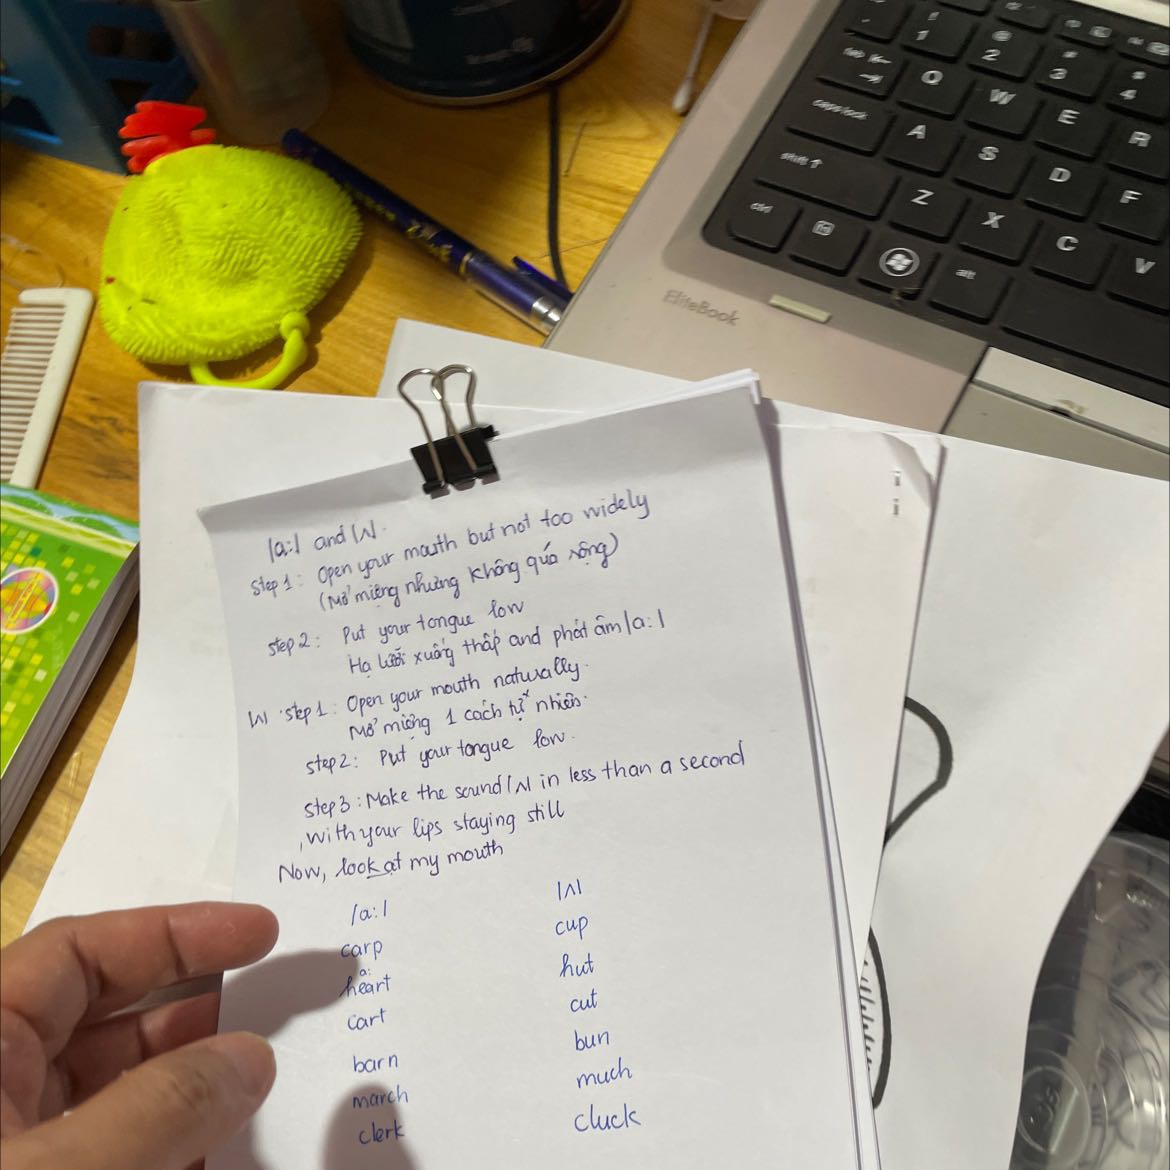 /a:/ and /ʌ/.
Step 1: Open your mouth but not too widely
(Mở miệng nhưng không quá rộng)
Step 2: Put your tongue low
Hạ lưỡi xuống thấp and phát âm /a:/
/ʌ/ step 1: Open your mouth naturally.
Mở miệng 1 cách tự nhiên.
step 2: Put your tongue low.
step 3: Make the sound /ʌ/ in less than a second
, with your lips staying still
Now, look at my mouth
/a:/ /ʌ/
carp cup
a:
heart hut
cart cut
barn bun
march much
clerk cluck
EliteBook
! 1 @ 2 # 3 $ 4
tab Q W E R
caps lock A S D F
shift Z X C V
ctrl alt